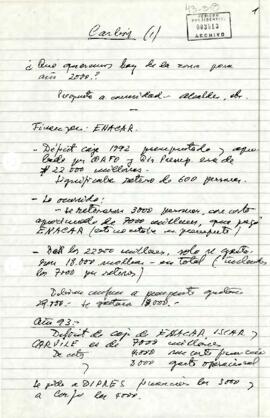 Carbón (1)
1
PERIODO
PRESIDENCIAL
003613
ARCHIVO
¿Que queremos hoy de la zona para
año 2000.?
Propuesta a comunidad - alcaldes, etc.
Finanzas: ENACAR.
- Déficit caja 1992 presupuestado y
por y Dir Presup. era de
$ 22.000 millones.
Significaba retiro de 600 personas.
- Lo ocurrido:
- Se retiraron 3000 personas, con costo
aproximado de 7000 millones, que pagó
ENACAR (esto no estaba en presupuesto)
- De los 22.000 millones, solo se
18.000 millones - en total (incluidos
los 7000 por retiros)
presupuesto
29.000 - se 18.000 -
Año 93:-
Déficit de caja de ENACAR, ISCAR, y
CARVILE es de 7000 millones
De esto 4000 en costo
3000 gasto operacional
Se pide a DIPRES financiar los 3000 y
a Corfo los 4000.